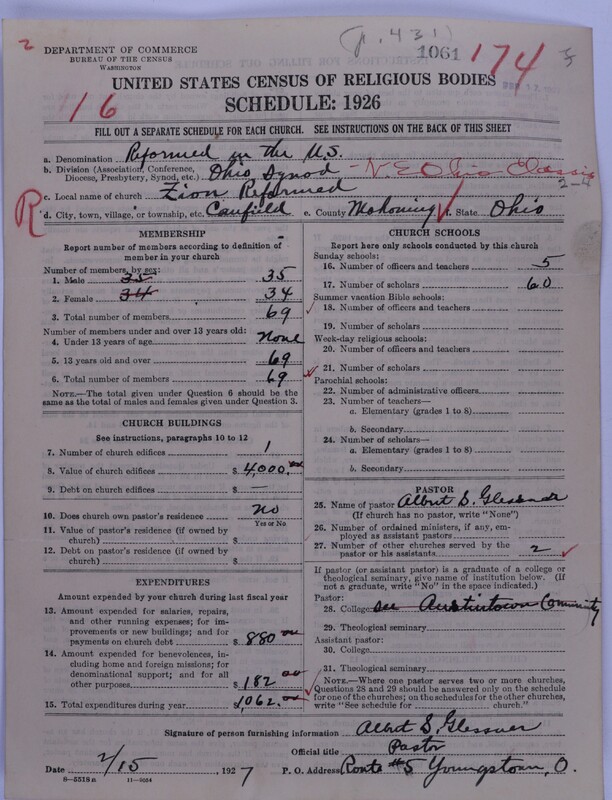 2
DEPARTMENT OF COMMERCE
BUREAU OF THE CENSUS
WASHINGTON
(p. 431)
1061
174
UNITED STATES CENSUS OF RELIGIOUS BODIES
SCHEDULE: 1926
116
FILL OUT A SEPARATE SCHEDULE FOR EACH CHURCH. SEE INSTRUCTIONS ON THE BACK OF THIS SHEET
a. Denomination Reformed in the U.S.
b. Division (Association, Conference, Diocese, Presbytery, Synod, etc.) Ohio Synod - N. E. Ohio Classis
2-4
c. Local name of church Zion Reformed
R
d. City, town, village, or township, etc. Canfield e. County Mahoning f. State Ohio
MEMBERSHIP
Report number of members according to definition of member in your church
Number of members, by sex:
1. Male 35 35
2. Female 34 34
3. Total number of members 69
Number of members under and over 13 years old:
4. Under 13 years of age None
5. 13 years old and over 69
6. Total number of members 69
NOTE.—The total given under Question 6 should be the same as the total of males and females given under Question 3.
CHURCH BUILDINGS
See instructions, paragraphs 10 to 12
7. Number of church edifices 1
8. Value of church edifices $ 4,000.00
9. Debt on church edifices $ —
10. Does church own pastor's residence No
Yes or No
11. Value of pastor's residence (if owned by church) $
12. Debt on pastor's residence (if owned by church) $
EXPENDITURES
Amount expended by your church during last fiscal year
13. Amount expended for salaries, repairs, and other running expenses; for improvements or new buildings; and for payments on church debt $ 880 00
14. Amount expended for benevolences, including home and foreign missions; for denominational support; and for all other purposes $ 182 00
15. Total expenditures during year 1,062.00
CHURCH SCHOOLS
Report here only schools conducted by this church
Sunday schools:
16. Number of officers and teachers 5
17. Number of scholars 60
Summer vacation Bible schools:
18. Number of officers and teachers
19. Number of scholars
Week-day religious schools:
20. Number of officers and teachers
21. Number of scholars
Parochial schools:
22. Number of administrative officers
23. Number of teachers—
a. Elementary (grades 1 to 8)
b. Secondary
24. Number of scholars—
a. Elementary (grades 1 to 8)
b. Secondary
PASTOR
25. Name of pastor Albert S. Glessner
(If church has no pastor, write "None")
26. Number of ordained ministers, if any, employed as assistant pastors
27. Number of other churches served by the pastor or his assistants 2
If pastor (or assistant pastor) is a graduate of a college or theological seminary, give name of institution below. (If not a graduate, write "No" in the space indicated.)
Pastor:
28. College see Austintown Community
29. Theological seminary
Assistant pastor:
30. College
31. Theological seminary
NOTE.—Where one pastor serves two or more churches, Questions 28 and 29 should be answered only on the schedule for one of the churches; on the schedules for the other churches, write "See schedule for church."
Signature of person furnishing information Albert S. Glessner
Official title Pastor
Date 2/15, 1927 P. O. Address Route #5 Youngstown, O.
8—5518 a 11—9034